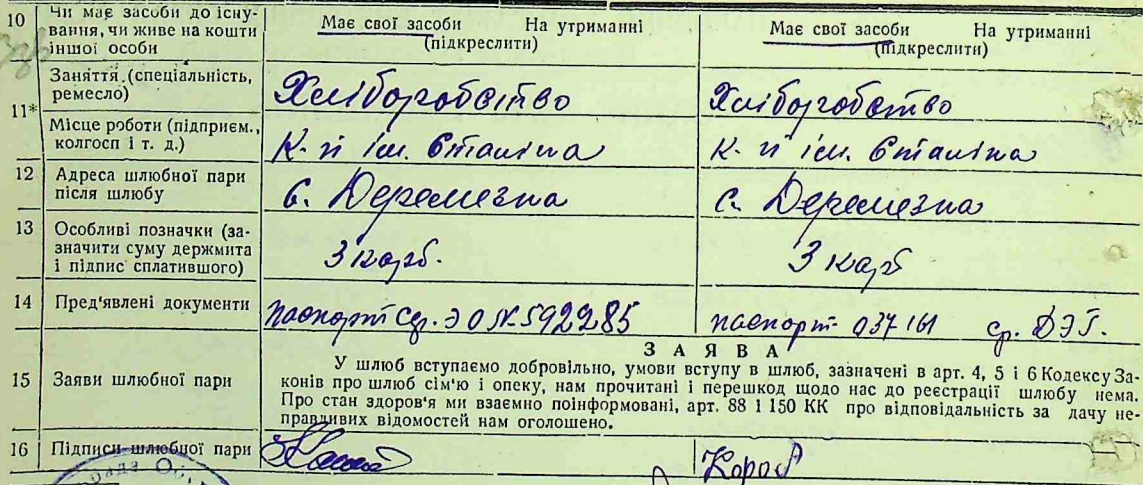 10 Чи має засоби до існу-
вання, чи живе на кошти
іншої особи
Має свої засоби На утриманні
(підкреслити)
Має свої засоби На утриманні
(підкреслити)
11*
Заняття (спеціальність,
ремесло)
Хліборобство
Хліборобство
Місце роботи (підприєм.,
колгосп і т. д.)
К-п ім. Сталіна
К-п ім. Сталіна
12 Адреса шлюбної пари
після шлюбу
с. Деремезна
с. Деремезна
13 Особливі позначки (за-
значити суму держмита
і підпис сплатившого)
3 карб.
3 карб
14 Пред'явлені документи
паспорт ср. ЭО № 592285
паспорт 037161 ср. ДЭГ.
15 Заяви шлюбної пари
ЗАЯВА
У шлюб вступаємо добровільно, умови вступу в шлюб, зазначені в арт. 4, 5 і 6 Кодексу За-
конів про шлюб сім'ю і опеку, нам прочитані і перешкод щодо нас до реєстрації шлюбу нема.
Про стан здоров'я ми взаємно поінформовані, арт. 88 і 150 КК про відповідальність за дачу не-
правдивих відомостей нам оголошено.
16 Підписи шлюбної пари
Короб